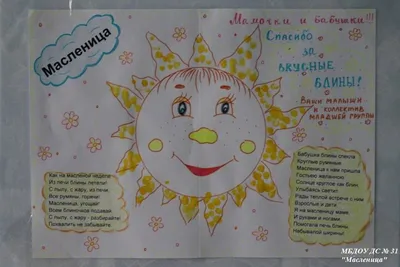 Масленица
Мамочки и бабушки!!!
Спасибо
за
вкусные
блины!
Ваши малыши
и коллектив
младшей группы
Как на масляной неделе
Из печи блины летели!
С пылу, с жару, из печи,
Все румяны, горячи!
Масленица, угощай!
Всем блиночков подавай.
С пылу, с жару - разбирайте!
Похвалить не забывайте.
Бабушка блины спекла
Круглые румяные
Масленица к нам пришла
Гостьею желанною
Солнце круглое как блин
Улыбаясь светит
Рады теплой встрече с ним
Взрослые и дети
И на масленицу мама
И руками и ногами
Помогала печь блины
Небывалой ширины!
МБДОУ ДС № 31
"Масленица"